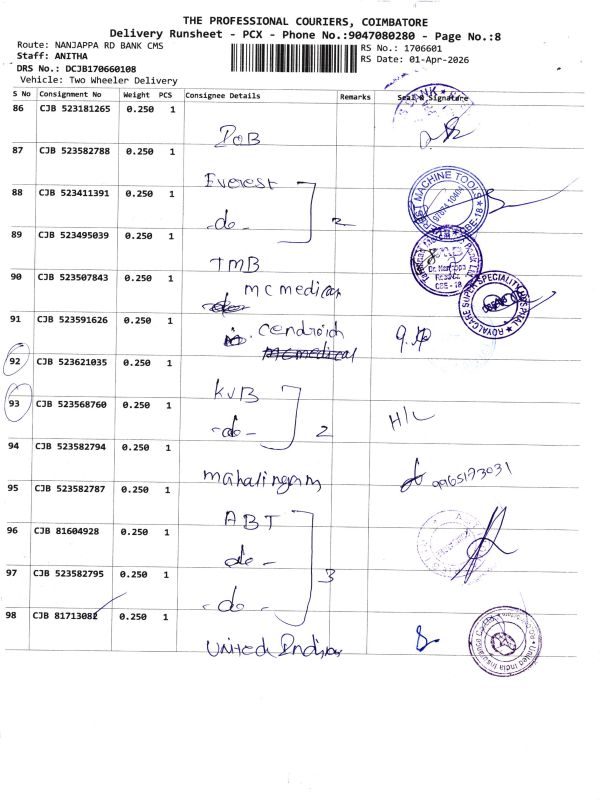 THE PROFESSIONAL COURIERS, COIMBATORE
Delivery Runsheet - PCX - Phone No.:9047080280 - Page No.:8
Route: NANJAPPA RD BANK CMS
RS No.: 1706601
Staff: ANITHA
RS Date: 01-Apr-2026
DRS No.: DCJB170660108
Vehicle: Two Wheeler Delivery
S No Consignment No Weight PCS Consignee Details Remarks Seal & Signature
86 CJB 523181265 0.250 1
BANK
87 CJB 523582788 0.250 1
Everest
88 CJB 523411391 0.250 1
-do- 2
MACHINE TOOLS
CBE-18
89 CJB 523495039 0.250 1
TMB
Dr. Nanjappa
CBE - 18
90 CJB 523507843 0.250 1
mc medical
ROYAL CARE SUPER SPECIALITY HOSPITAL
91 CJB 523591626 0.250 1
92 CJB 523621035 0.250 1
KVB
93 CJB 523568760 0.250 1
-do- 2
H/L
94 CJB 523582794 0.250 1
mahalingam
9965173031
95 CJB 523582787 0.250 1
ABT
96 CJB 81604928 0.250 1
do-
97 CJB 523582795 0.250 1
3
-do-
98 CJB 81713082 0.250 1
United India
United India Insurance